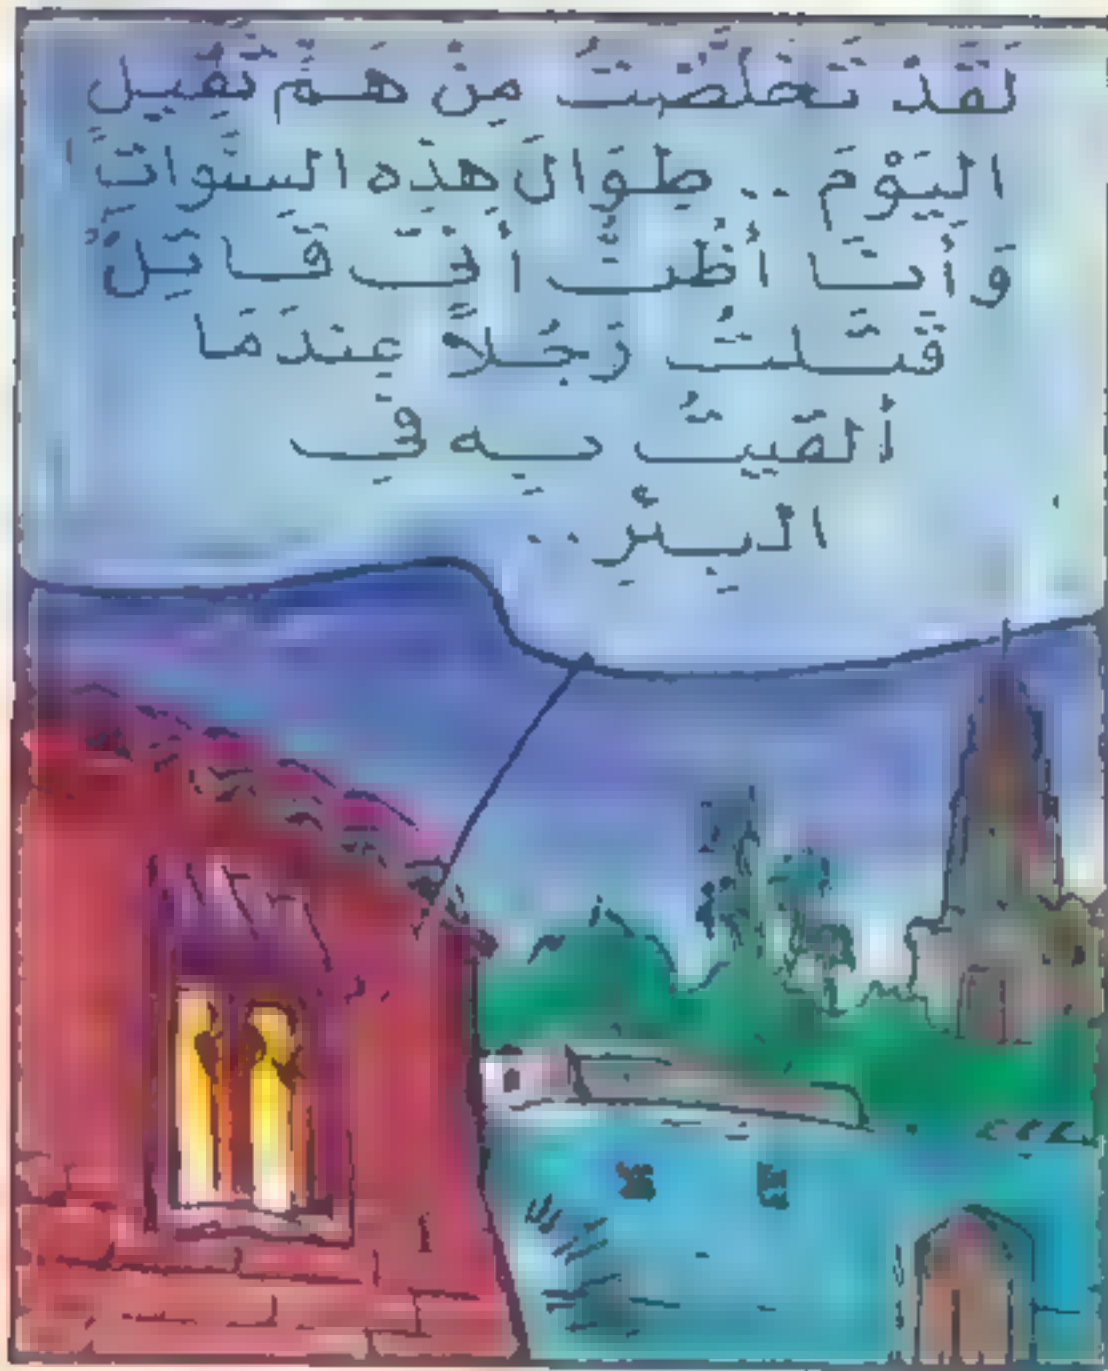 لَقَدْ تَخَلَّصْتُ مِنْ هَمٍّ ثَقِيلٍ
الْيَوْمَ .. طِوَالَ هَذِهِ السَّنَوَاتِ
وَأَنَا أَظُنُّ أَنِّي قَاتِلٌ
قَتَلْتُ رَجُلاً عِنْدَمَا
أَلْقَيْتُ بِهِ فِي
الْبِئْرِ ..